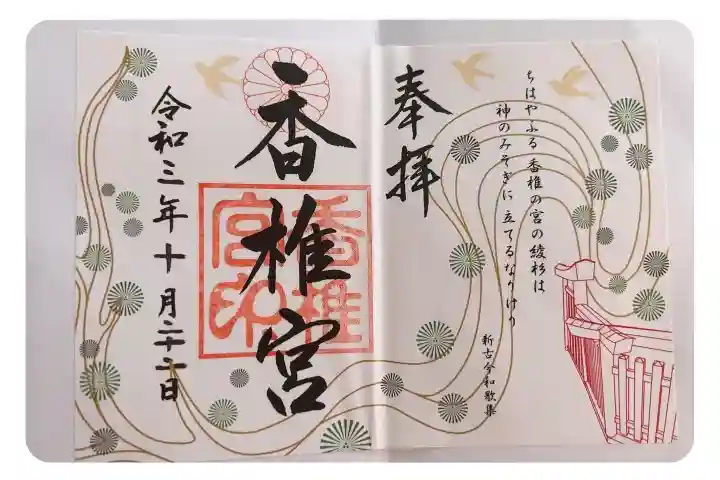 ちはやふる 香椎の宮の綾杉は
神のみそぎに 立てるなりけり
新古今和歌集
奉拝
香椎宮
香椎宮印
令和三年十月二十二日